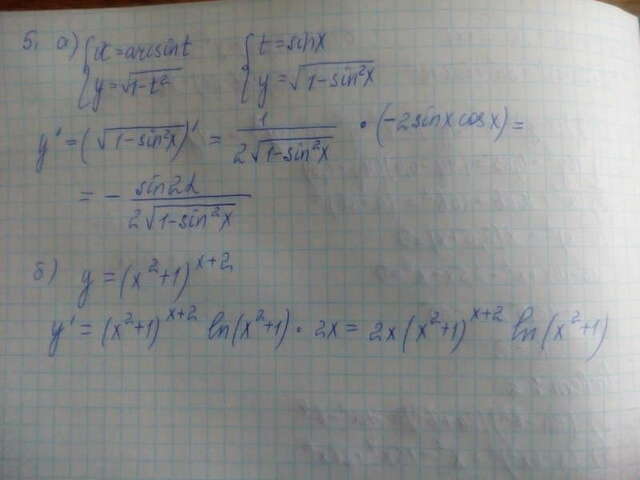 5. а) { x = arcsin t { t = sin x
y = √(1-t²) y = √(1-sin²x)
y' = (√(1-sin²x))' = 1/(2√(1-sin²x)) · (-2sinx cosx) =
= - sin2x/(2√(1-sin²x))
б) y = (x²+1)^(x+2)
y' = (x²+1)^(x+2) ln(x²+1) · 2x = 2x(x²+1)^(x+2) ln(x²+1)